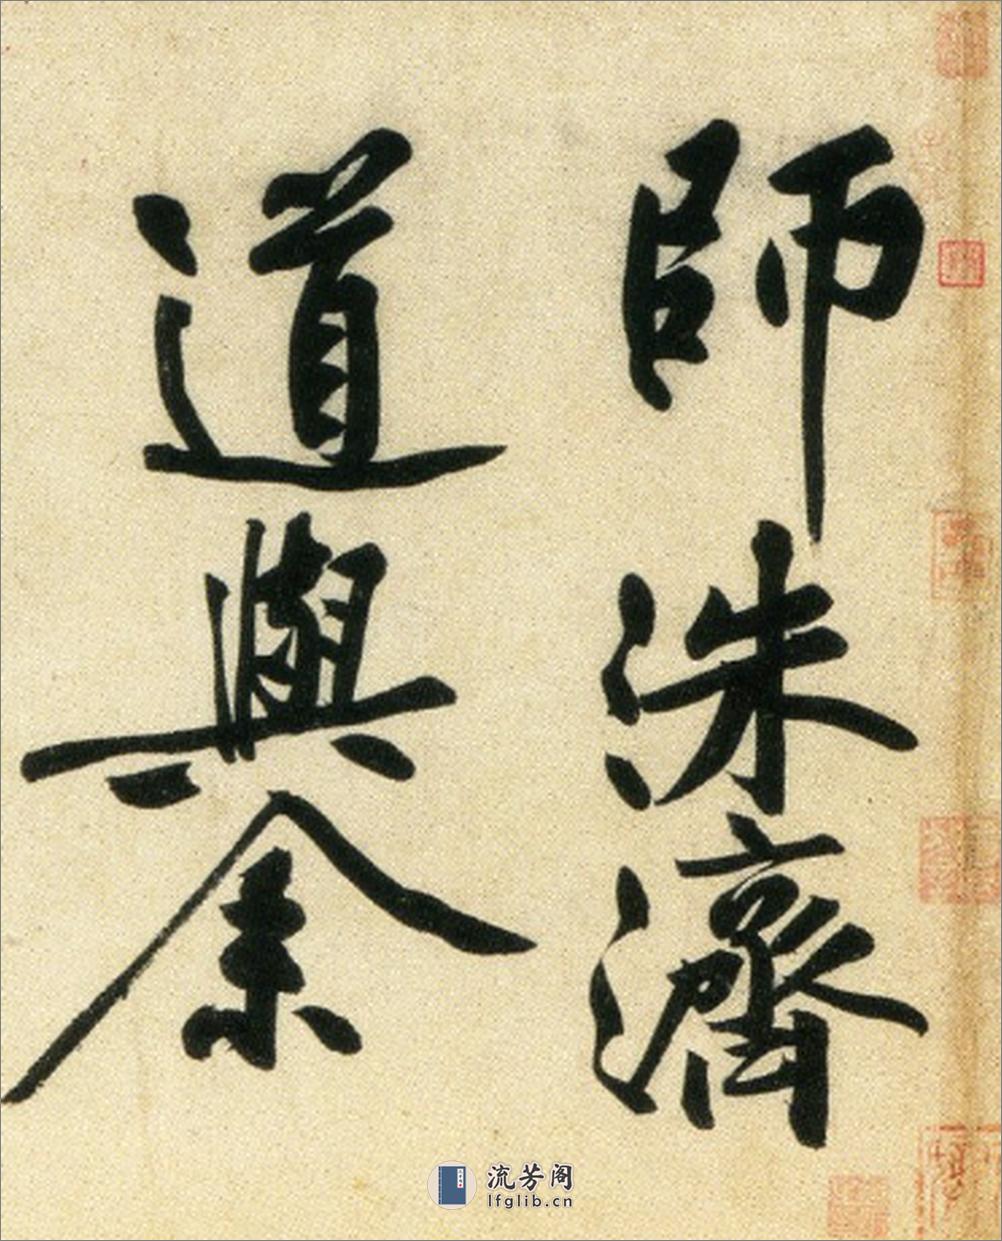 師洙濟
道與余
流芳阁
lfglib.cn